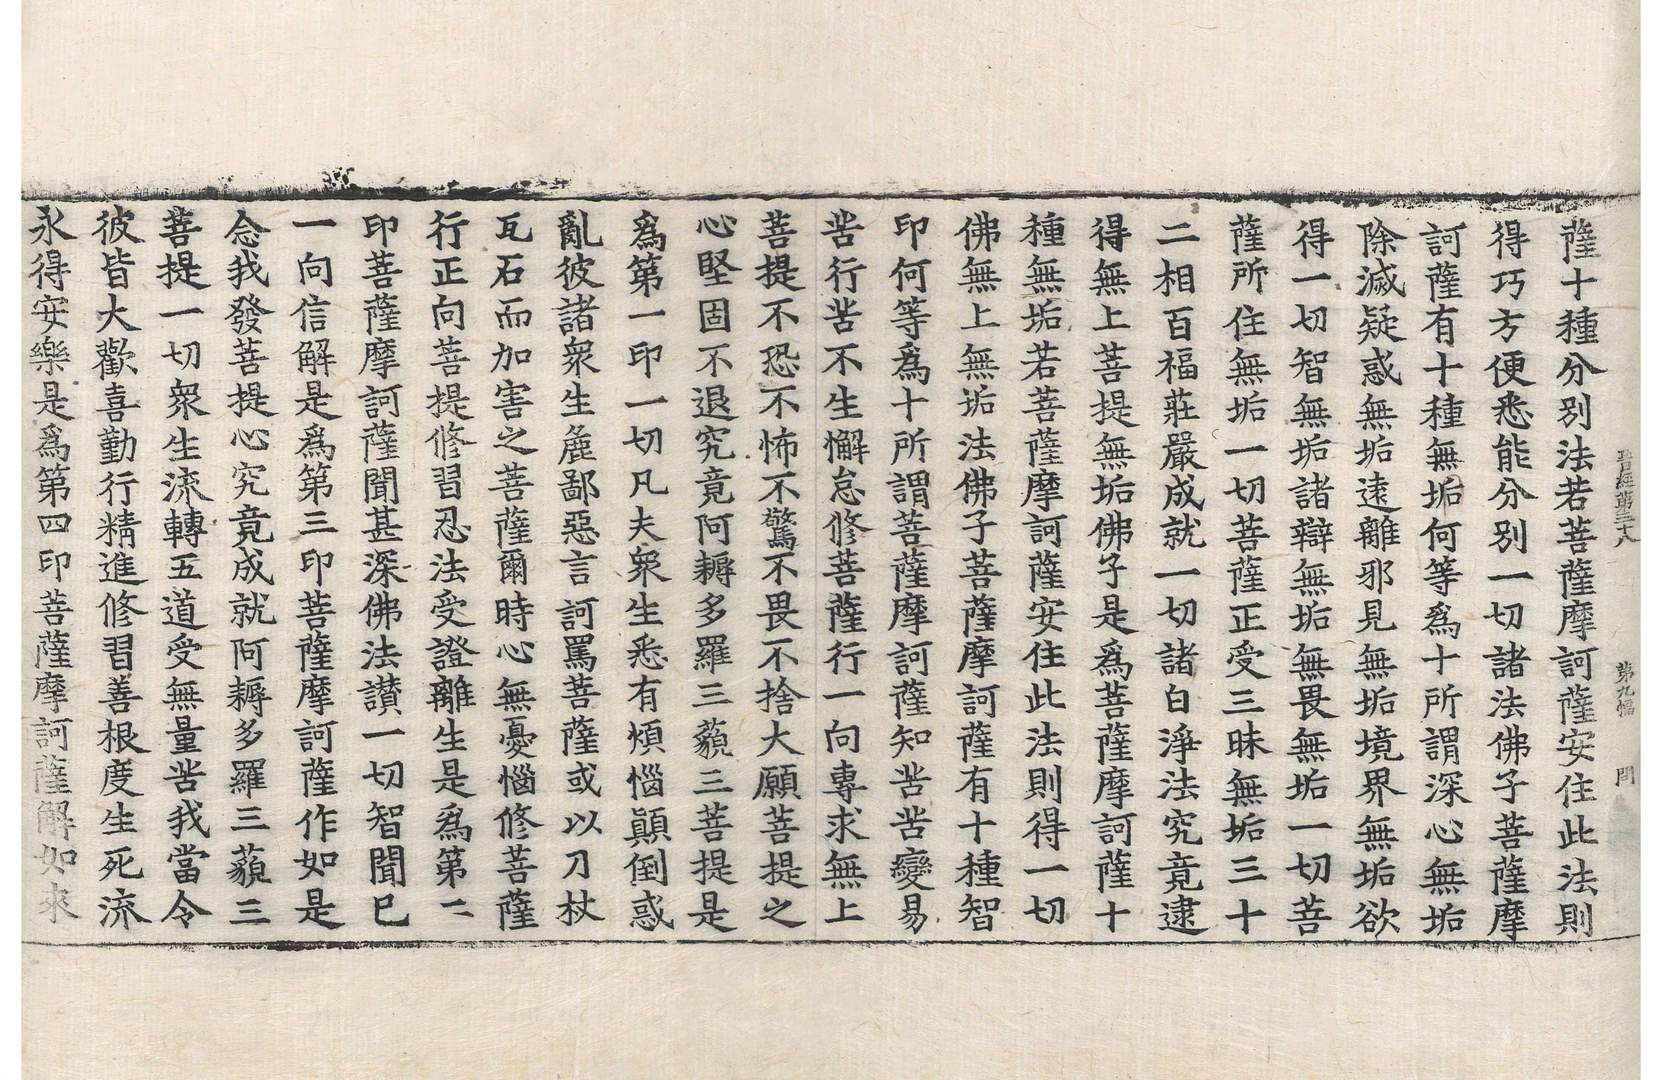 晋經第三十八 第九幅 問
薩十種分別法若菩薩摩訶薩安住此法則
得巧方便悉能分別一切諸法佛子菩薩摩
訶薩有十種無垢何等爲十所謂深心無垢
除滅疑惑無垢遠離邪見無垢境界無垢欲
得一切智無垢諸辯無垢無畏無垢一切菩
薩所住無垢一切菩薩正受三昧無垢三十
二相百福莊嚴成就一切諸白淨法究竟逮
得無上菩提無垢佛子是爲菩薩摩訶薩十
種無垢若菩薩摩訶薩安住此法則得一切
佛無上無垢法佛子菩薩摩訶薩有十種智
印何等爲十所謂菩薩摩訶薩知苦苦變易
苦行苦不生懈怠修菩薩行一向專求無上
菩提不恐不怖不驚不畏不捨大願菩提之
心堅固不退究竟阿耨多羅三藐三菩提是
爲第一印一切凡夫衆生悉有煩惱顚倒惑
亂彼諸衆生麁鄙惡言訶罵菩薩或以刀杖
瓦石而加害之菩薩爾時心無憂惱修菩薩
行正向菩提修習忍法受證離生是爲第二
印菩薩摩訶薩聞甚深佛法讃一切智聞已
一向信解是爲第三印菩薩摩訶薩作如是
念我發菩提心究竟成就阿耨多羅三藐三
菩提一切衆生流轉五道受無量苦我當令
彼皆大歡喜勤行精進修習善根度生死流
永得安樂是爲第四印菩薩摩訶薩解如來